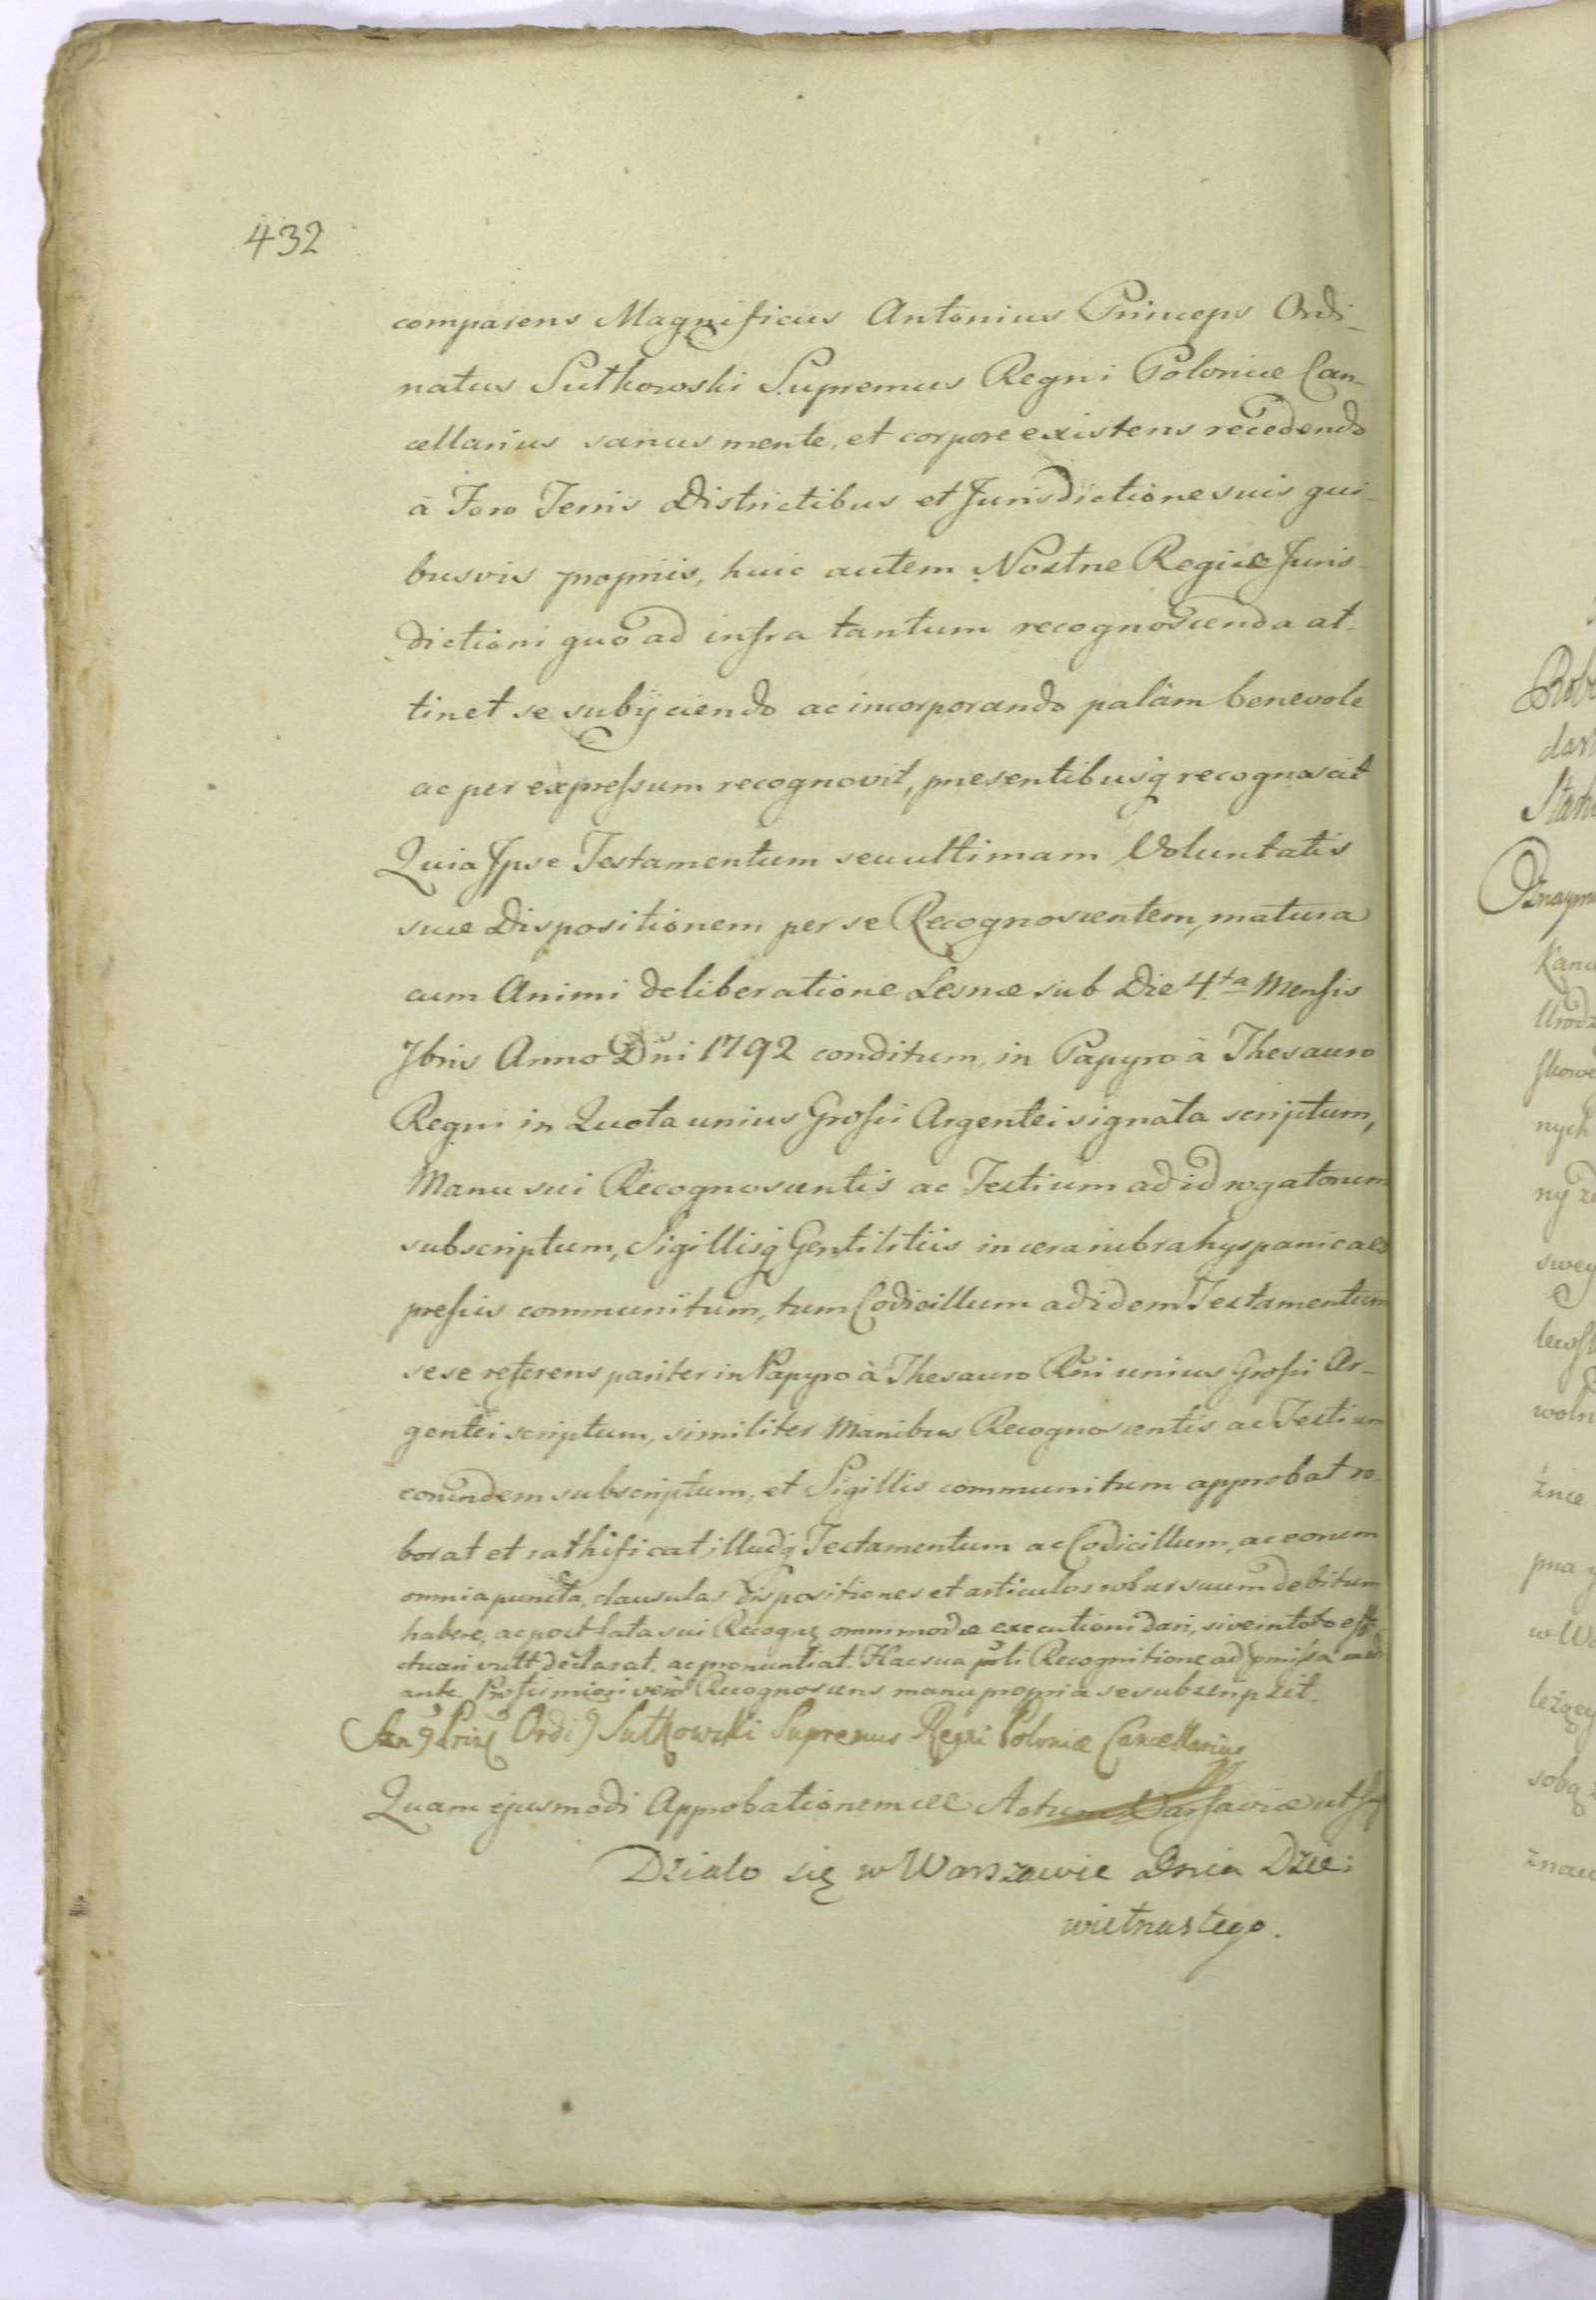 432
comparens Magnificus Antonius Princeps Ordi-
natus Sułkowski Supremus Regni Poloniæ Can-
cellarius sanus mente, et corpore existens recedendo
à Foro Terris Districtibus et Jurisdictione suis qui-
busvis propriis, huic autem Nostræ Regiæ Juris-
dictioni quo ad infra tantum recognoscenda at-
tinet se subijciendo ac incorporando palàm benevole
ac per expressum recognovit, præsentibusq recognoscit
Quia Ipse Testamentum seu ultimam Voluntatis
suæ Dispositionem per se Recognoscentem, matura
cum Animi deliberatione Lesnæ sub Die 4.ta Mensis
7bris Anno Dni 1792 conditum, in Papyro à Thesauro
Regni in Quota unius Grossi Argentei signata scriptum,
Manu sui Recognoscentis ac Testium ad id rogatorum
subscriptum, Sigillisq Gentilitiis in cera rubra hyspanica ex
pressis communitum, tum Codicillum ad idem Testamentum
sese referens pariter in Papyro à Thesauro Rni unius Grossi Ar-
gentei scriptum, similiter Manibus Recognoscentis ac Testium
eorundem subscriptum, et Sigillis communitum approbat ro-
borat et rathificat, illudq Testamentum ac Codicillum, ac eorum
omnia puncta, clausulas dispositiones et articulos robur suum debitum
habere, ac post fata sui Recogns omnimodæ executioni dari, sive in toto effe-
ctuari vult declarat, ac pronuntiat. Hac sua pnti Recognitione ad pmissa medi
ante. Pro firmiori verò Recognoscens manu propria se subscripsit.
Ordi9 Sułkowski Supremus Regni Poloniæ Cancellarius
Quam ejusmodi Approbationem etc Actum Varsaviæ ut sq
Działo się w Warszawie Dnia Dzie:
wietnastego.
Robo
dar
Stani
Oznaym
Kanc
Urodz
skowe
nych
ny
swey
lewsk
woln
żnie
pna
w Wa
leżącey
sobą
znai